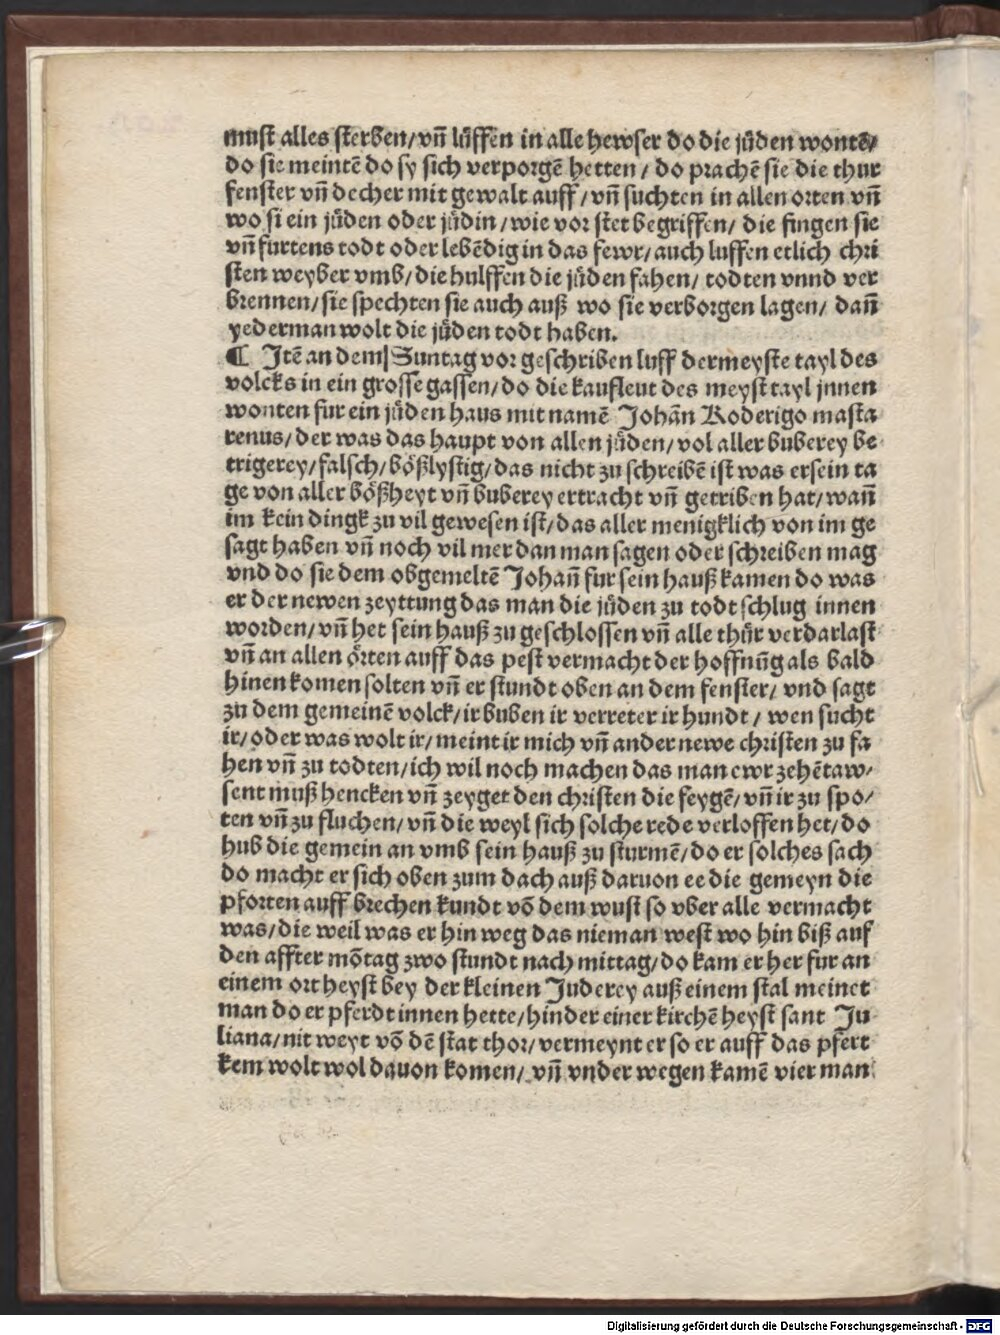 must alles sterben/vñ lüffen in alle hewser do die jüden wontē/
do sie meintē do sy sich verporgē hetten / do prachē sie die thur
fenster vñ decher mit gewalt auff / vñ suchten in allen orten vñ
wo si ein jüden oder jüdin / wie vor stet begriffen/ die fingen sie
vñ furtens todt oder lebēdig in das fewr/ auch luffen etlich chri
sten weyber vmb/ die hulffen die jüden fahen/ todten vnnd ver
brennen/ sie spechten sie auch auß wo sie verborgen lagen/ dañ
yederman wolt die jüden todt haben.
¶ Itē an dem Suntag vor geschriben luff der meyste tayl des
volcks in ein grosse gassen/ do die kaufleut des meyst tayl jnnen
wonten fur ein jüden haus mit namē Johān Roderigo masta
renus/ der was das haupt von allen jüden/ vol aller buberey be
trigerey/ falsch/ bößlystig/ das nicht zu schreibē ist was er sein ta
ge von aller bößheyt vñ buberey ertracht vñ getriben hat/ wañ
im kein dingk zu vil gewesen ist/ das aller menigklich von im ge
sagt haben vñ noch vil mer dan man sagen oder schreiben mag
vnd do sie dem obgemeltē Johañ fur sein hauß kamen do was
er der newen zeyttung das man die jüden zu todt schlug innen
worden/ vñ het sein hauß zu geschlossen vñ alle thür verdarlast
vñ an allen örten auff das pest vermacht der hoffnūg als bald
hinen komen solten vñ er stundt oben an dem fenster/ vnd sagt
zu dem gemeinē volck/ ir buben ir verreter ir hundt / wen sucht
ir/ oder was wolt ir/ meint ir mich vñ ander newe christen zu fa
hen vñ zu todten/ ich wil noch machen das man ewr zehētaw/
sent muß hencken vñ zeyget den christen die feygē/ vñ ir zu spo/
ten vñ zu fluchen/ vñ die weyl sich solche rede verloffen het/ do
hub die gemein an vmb sein hauß zu sturmē/ do er solches sach
do macht er sich oben zum dach auß daruon ee die gemeyn die
pforten auff brechen kundt vō dem wust so vber alle vermacht
was/ die weil was er hin weg das nieman west wo hin biß auf
den affter mōtag zwo stundt nach mittag/ do kam er her fur an
einem ort heyst bey der kleinen Juderey auß einem stal meinet
man do er pferdt innen hette/ hinder einer kirchē heyst sant Ju
liana/ nit weyt vō dē stat thor/ vermeynt er so er auff das pfert
kem wolt wol dauon komen/ vñ vnder wegen kamē vier man
Digitalisierung gefördert durch die Deutsche Forschungsgemeinschaft - DFG